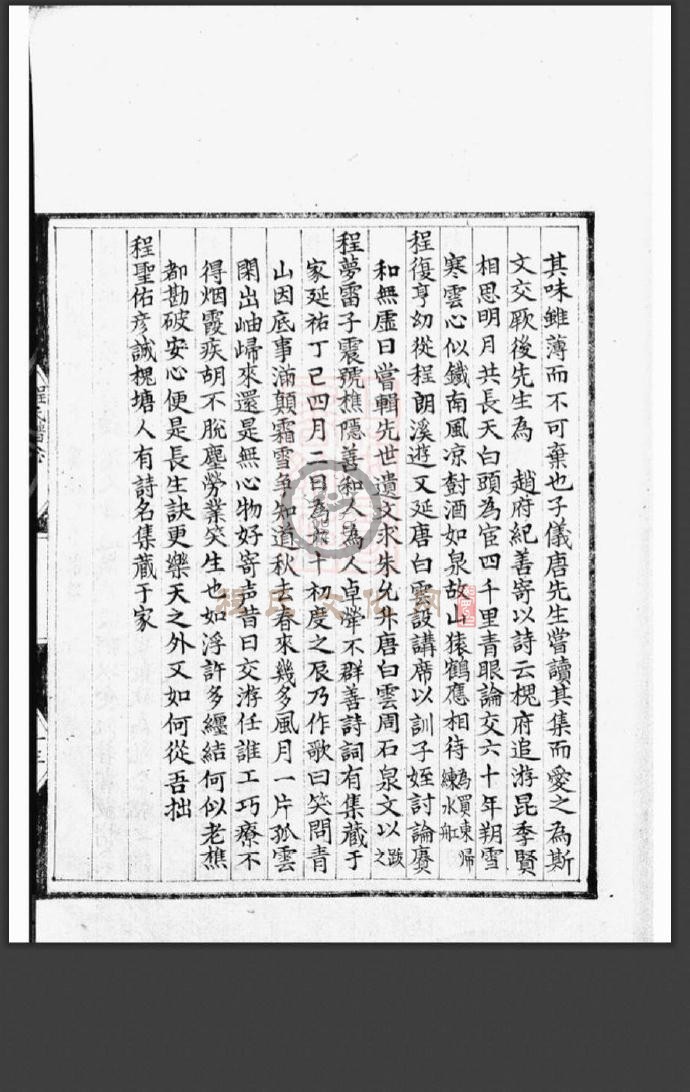 其味雖薄而不可棄也子儀唐先生嘗讀其集而愛之為斯
文交厥後先生為 趙府紀善寄以詩云槐府追游昆季賢
相思明月共長天白頭為宦四千里青眼論交六十年朔雪
寒雲心似鐵南風凉對酒如泉故山猿鶴應相待為買東歸練水舡
程復亨幼從程朗溪遊又延唐白雲設講席以訓子姪討論賡
和無虛日嘗輯先世遺文求朱允升唐白雲周石泉文以跋之
程夢雷子震號樵隱善和人為人卓犖不群善詩詞有集藏于
家延祐丁巳四月二日為六十初度之辰乃作歌曰笑問青
山因底事滿顛霜雪争知道秋去春來幾多風月一片孤雲
閑出岫歸來還是無心物好寄声昔日交游任誰工巧療不
得烟霞疾胡不脫塵勞業笑生也如浮許多纏結何似老樵
都勘破安心便是長生訣更樂天之外又如何從吾拙
程聖佑彦誠槐塘人有詩名集藏于家
程氏譜
程氏文化网